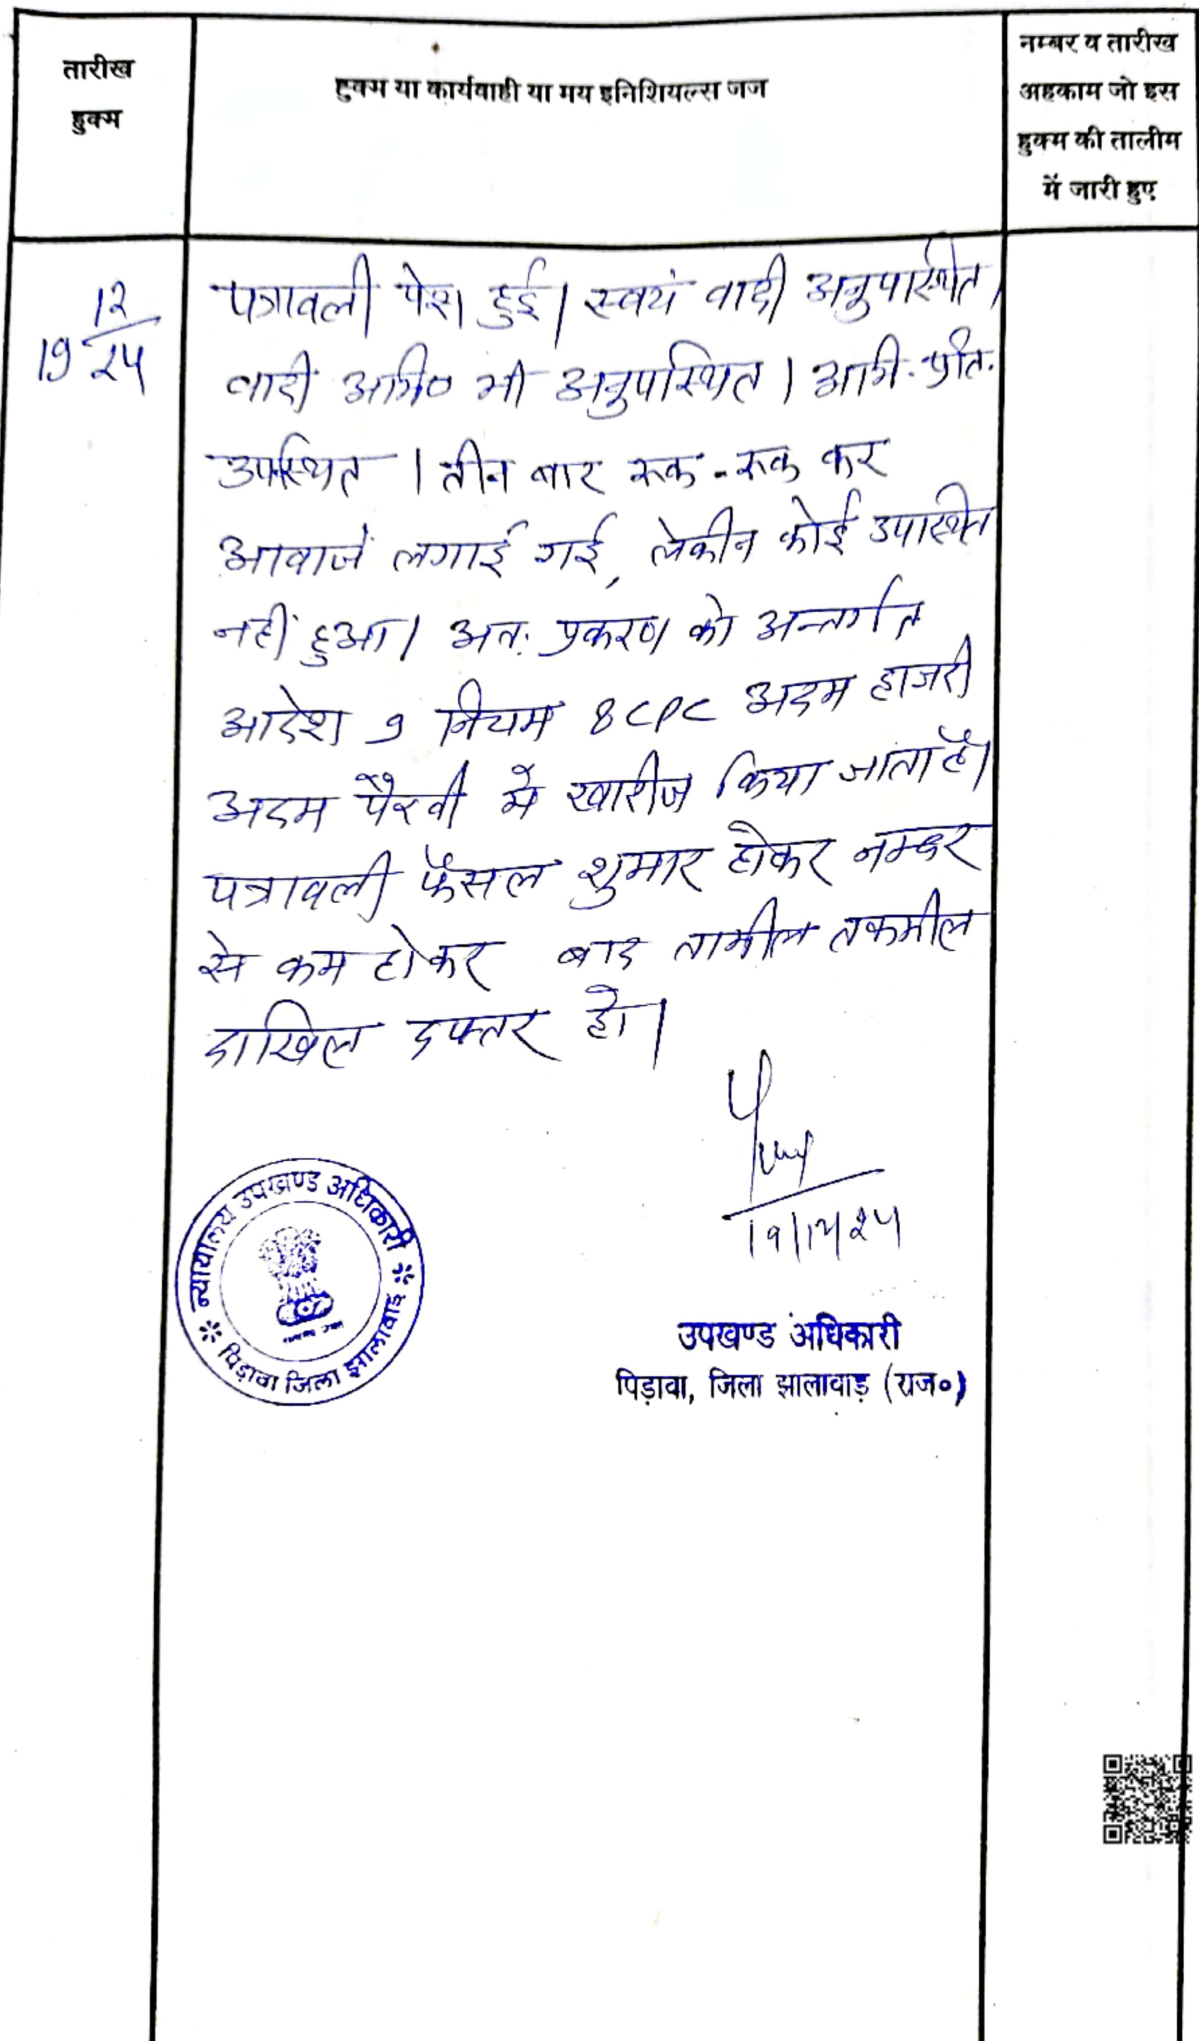 तारीख
हुक्म
हुक्म या कार्यवाही या मय इनिशियल्स जज
नम्बर व तारीख
अहकाम जो इस
हुक्म की तालीम
में जारी हुए
19 12/24
पत्रावली पेश हुई। स्वयं वादी अनुपास्थित।
वादी अभि० भी अनुपस्थित। अभि. प्रति.
उपस्थित । तीन बार रूक-रूक कर
आवाजें लगाई गई, लेकीन कोई उपास्थित
नहीं हुआ। अतः प्रकरण को अन्तर्गत
आदेश 9 नियम 8 CPC अदम हाजरी
अदम पैरवी में खारीज किया जाता है।
पत्रावली फैसल शुमार होकर नम्बर
से कम होकर बाद तामील तकमील
दाखिल दफ्तर हो।
19/12/24
न्यायालय उपखण्ड अधिकारी
पिड़ावा जिला झालावाड़
उपखण्ड अधिकारी
पिड़ावा, जिला झालावाड़ (राज०)